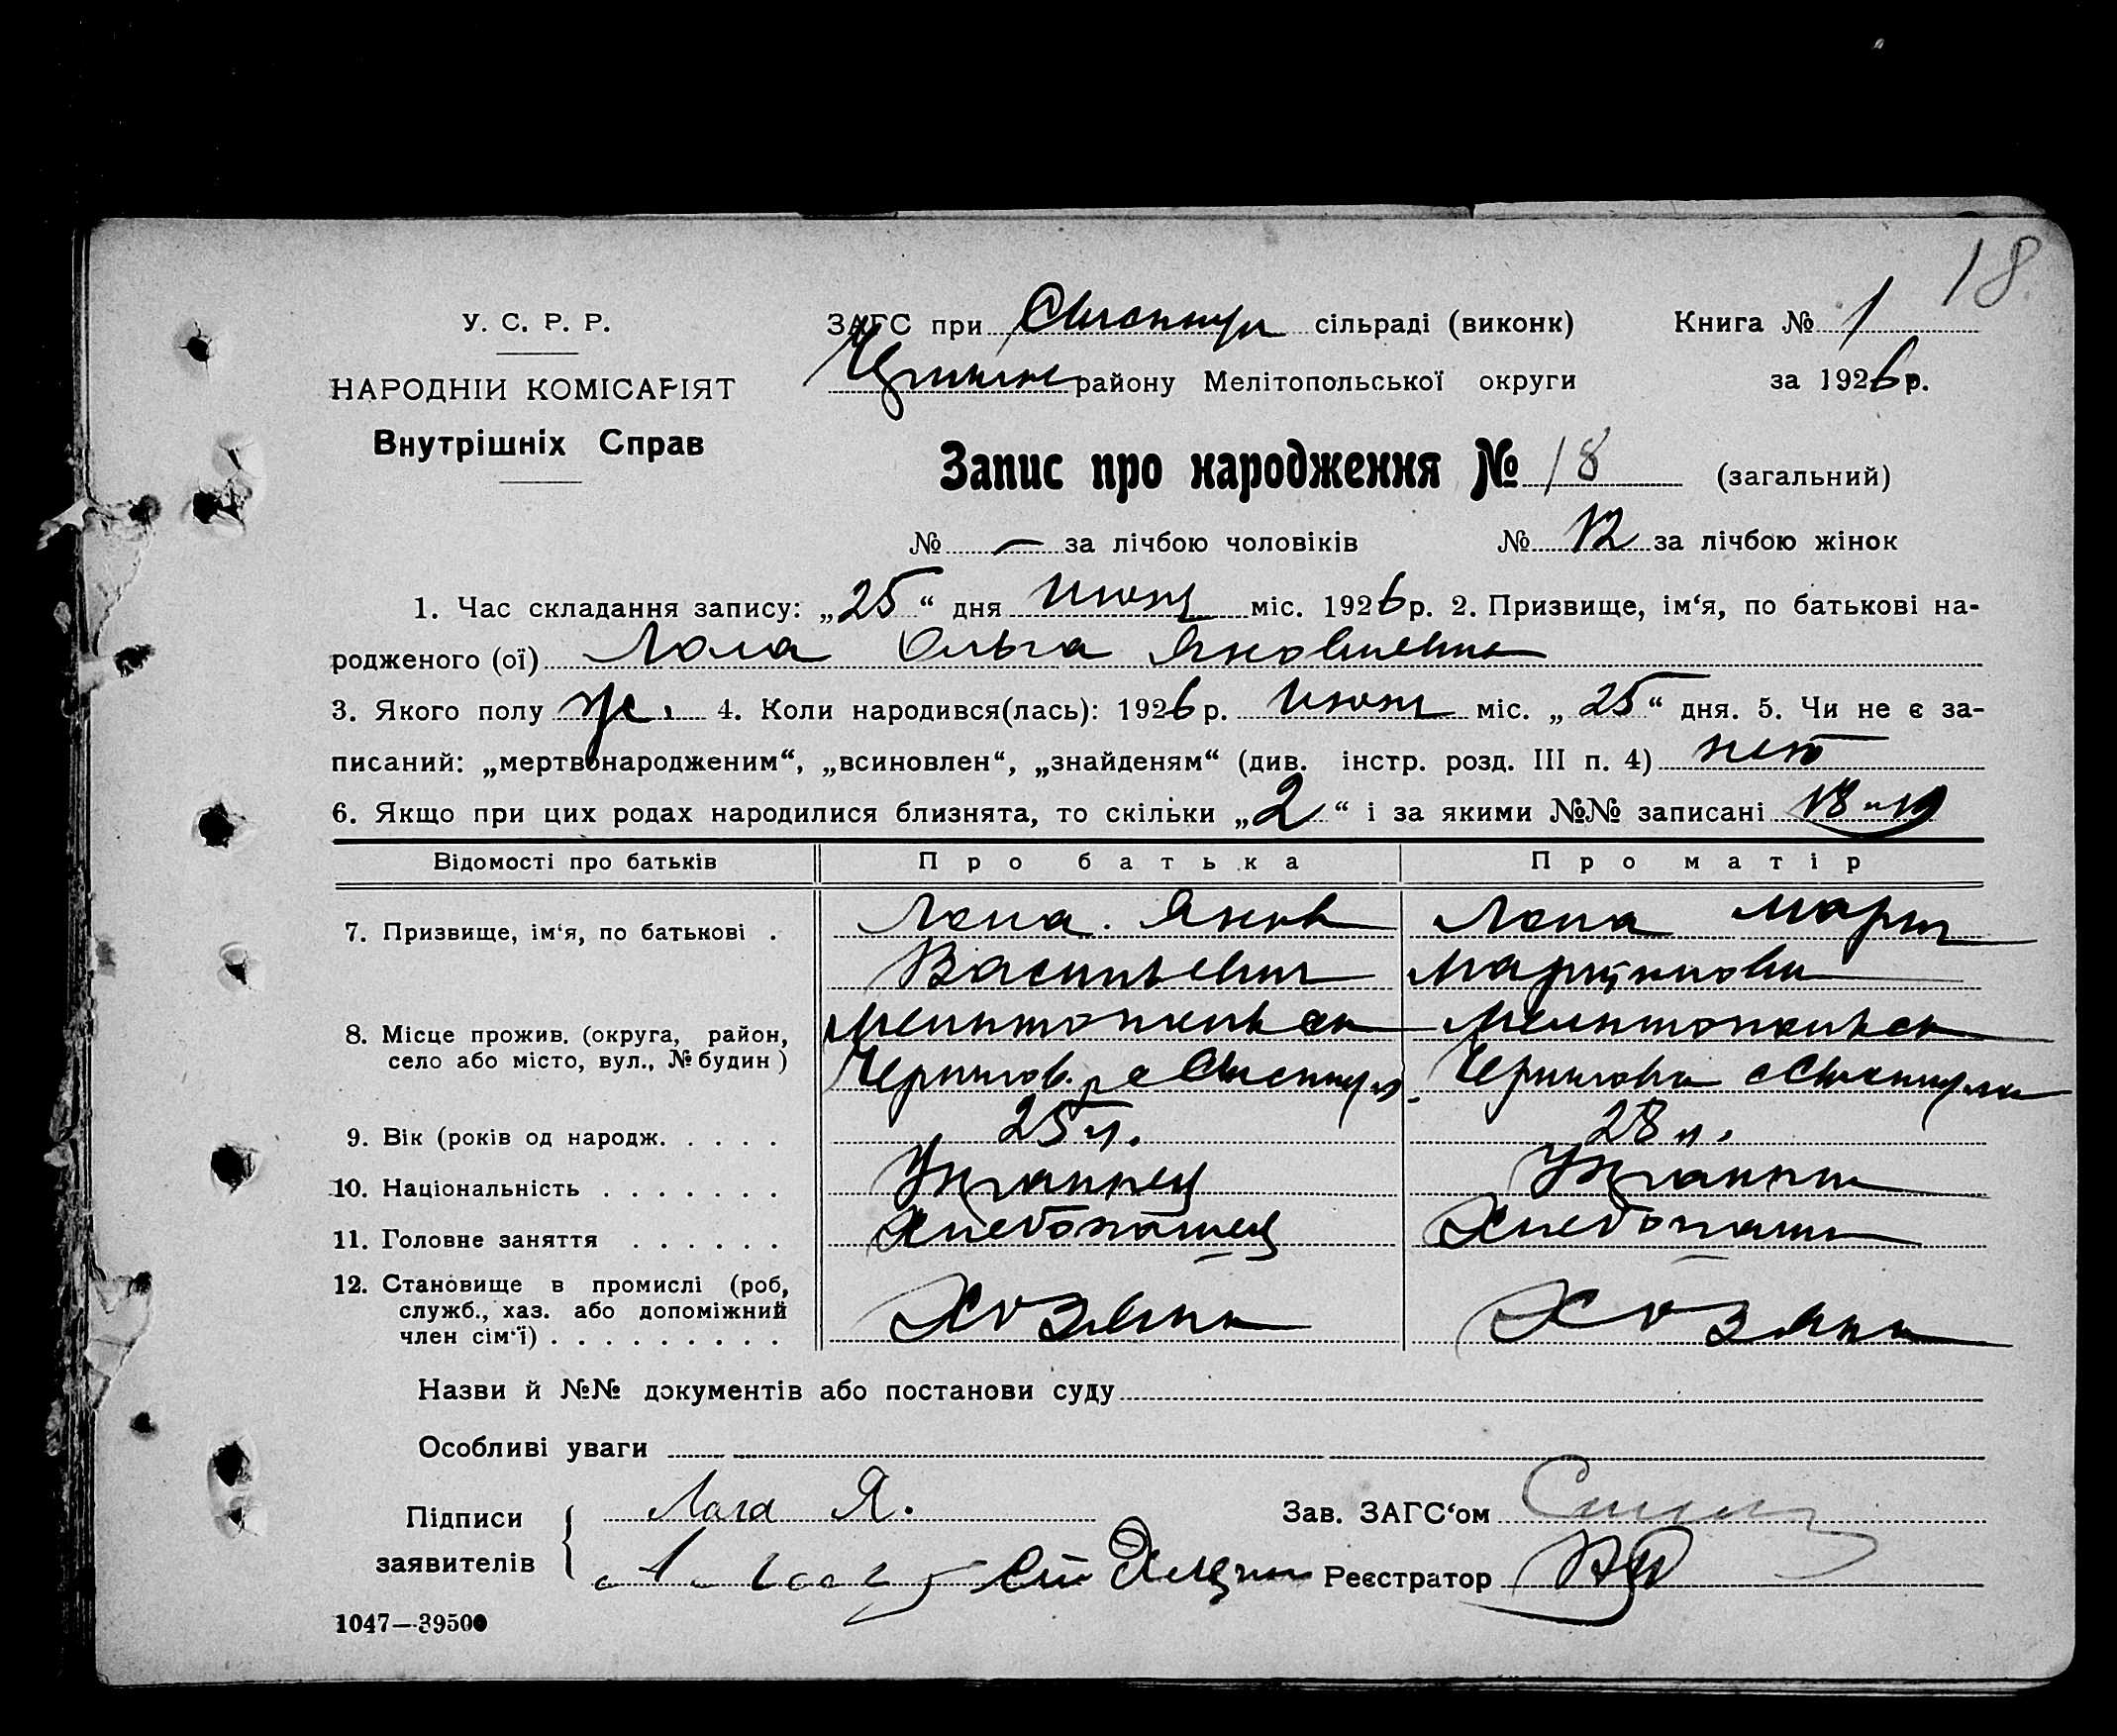 18
У. С. Р. Р.
НАРОДНІЙ КОМІСАРІЯТ
Внутрішніх Справ
ЗАГС при сільраді (виконк) Книга № 1
району Мелітопольської округи за 1926 р.
Запис про народження № 18 (загальний)
№ — за лічбою чоловіків № 12 за лічбою жінок
1. Час складання запису: „25“ дня міс. 1926 р. 2. Призвище, ім‘я, по батькові на-
родженого (ої) Лола Ольга Яковлевна
3. Якого полу ж. 4. Коли народився(лась): 1926 р. міс. „25“ дня. 5. Чи не є за-
писаний: „мертвонародженим“, „всиновлен“, „знайденям“ (див. інстр. розд. III п. 4) нет
6. Якщо при цих родах народилися близнята, то скільки „2“ і за якими №№ записані 18 и 19
Відомості про батьків Про батька Про матір
7. Призвище, ім‘я, по батькові . Лола Яков Лола Мария
Васильевич Мартиновна
8. Місце прожив. (округа, район, село або місто, вул., № будин) Мелитопольск Мелитопольск
Чернигов. р с Чернигова с
9. Вік (років од народж. . . . . 25 л. 28 л.
10. Національність . . . . . . . Украинец Украинка
11. Головне заняття . . . . . . Хлебопашец Хлебопаш
12. Становище в промислі (роб, служб., хаз. або допоміжний член сім‘ї) . . . . . . . . . Хозяин Хозяйка
Назви й №№ документів або постанови суду
Особливі уваги
Підписи заявителів Лола Я. Зав. ЗАГС‘ом
Реєстратор
1047—39500